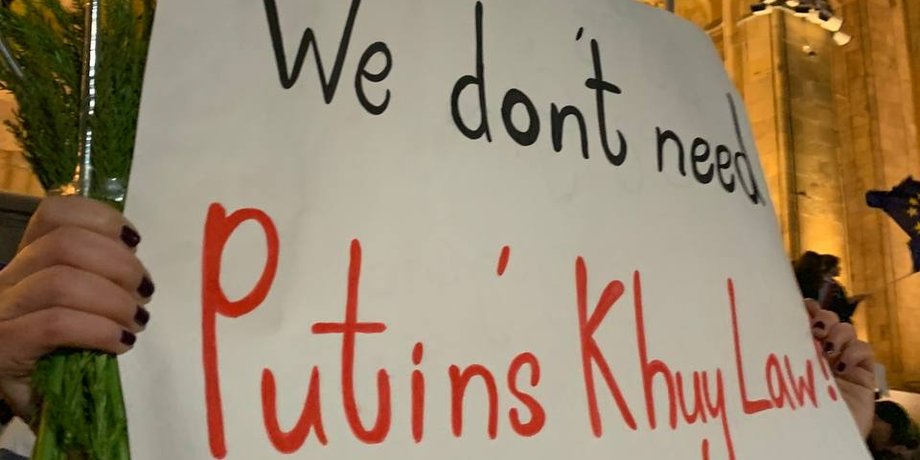 We don't need
Putin's Khuy Law!